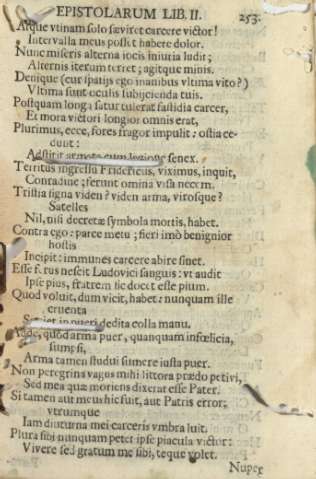 EPISTOLARUM LIB. II. 253.
Atque vtinam solo sæviret carcere victor!
Intervalla meus posset habere dolor.
Nunc miseris alterna iocis iniuria ludit;
Alternis iterum terret; agitque minis.
Denique (cur spatijs ego inanibus vltima vito?)
Vltima sunt oculis subijcienda tuis.
Postquam longa satur tulerat fastidia carcer,
Et mora victori longior omnis erat,
Plurimus, ecce, fores fragor impulit: ostia ce-
dunt:
Adstitit armata cum legione senex.
Territus ingressu Fridericus, viximus, inquit,
Conradine; ferunt omina visa necem.
Tristia signa viden? viden arma, virosque?
Satelles
Nil, nisi decretæ symbola mortis, habet.
Contra ego: parce metu; fieri imò benignior
hostis
Incipit: immunes carcere abire sinet.
Esse ferus nescit Ludovici sanguis: vt audit
Ipse pius, fratrem sic docet esse pium.
Quod voluit, dum vicit, habet: nunquam ille
cruenta
in pueri dedita colla manu.
Adde, quòd arma puer, quanquam infœlicia,
sumpsi,
Arma tamen studui sumere iusta puer.
Non peregrina vagus mihi littora prædo petivi,
Sed mea quæ moriens dixerat esse Pater.
Si tamen aut meus hic fuit, aut Patris error;
vtrumque
Iam diuturna mei carceris vmbra luit.
Plura sibi nunquam petet ipse piacula victor:
Vivere sed gratum me sibi, teque volet.
Nuper